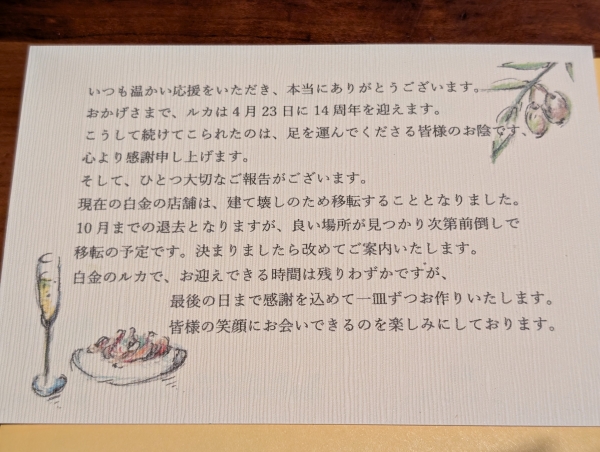 いつも温かい応援をいただき、本当にありがとうございます。
おかげさまで、ルカは4月23日に14周年を迎えます。
こうして続けてこられたのは、足を運んでくださる皆様のお陰です、
心より感謝申し上げます。
そして、ひとつ大切なご報告がございます。
現在の白金の店舗は、建て壊しのため移転することとなりました。
10月までの退去となりますが、良い場所が見つかり次第前倒しで
移転の予定です。決まりましたら改めてご案内いたします。
白金のルカで、お迎えできる時間は残りわずかですが、
最後の日まで感謝を込めて一皿ずつお作りいたします。
皆様の笑顔にお会いできるのを楽しみにしております。